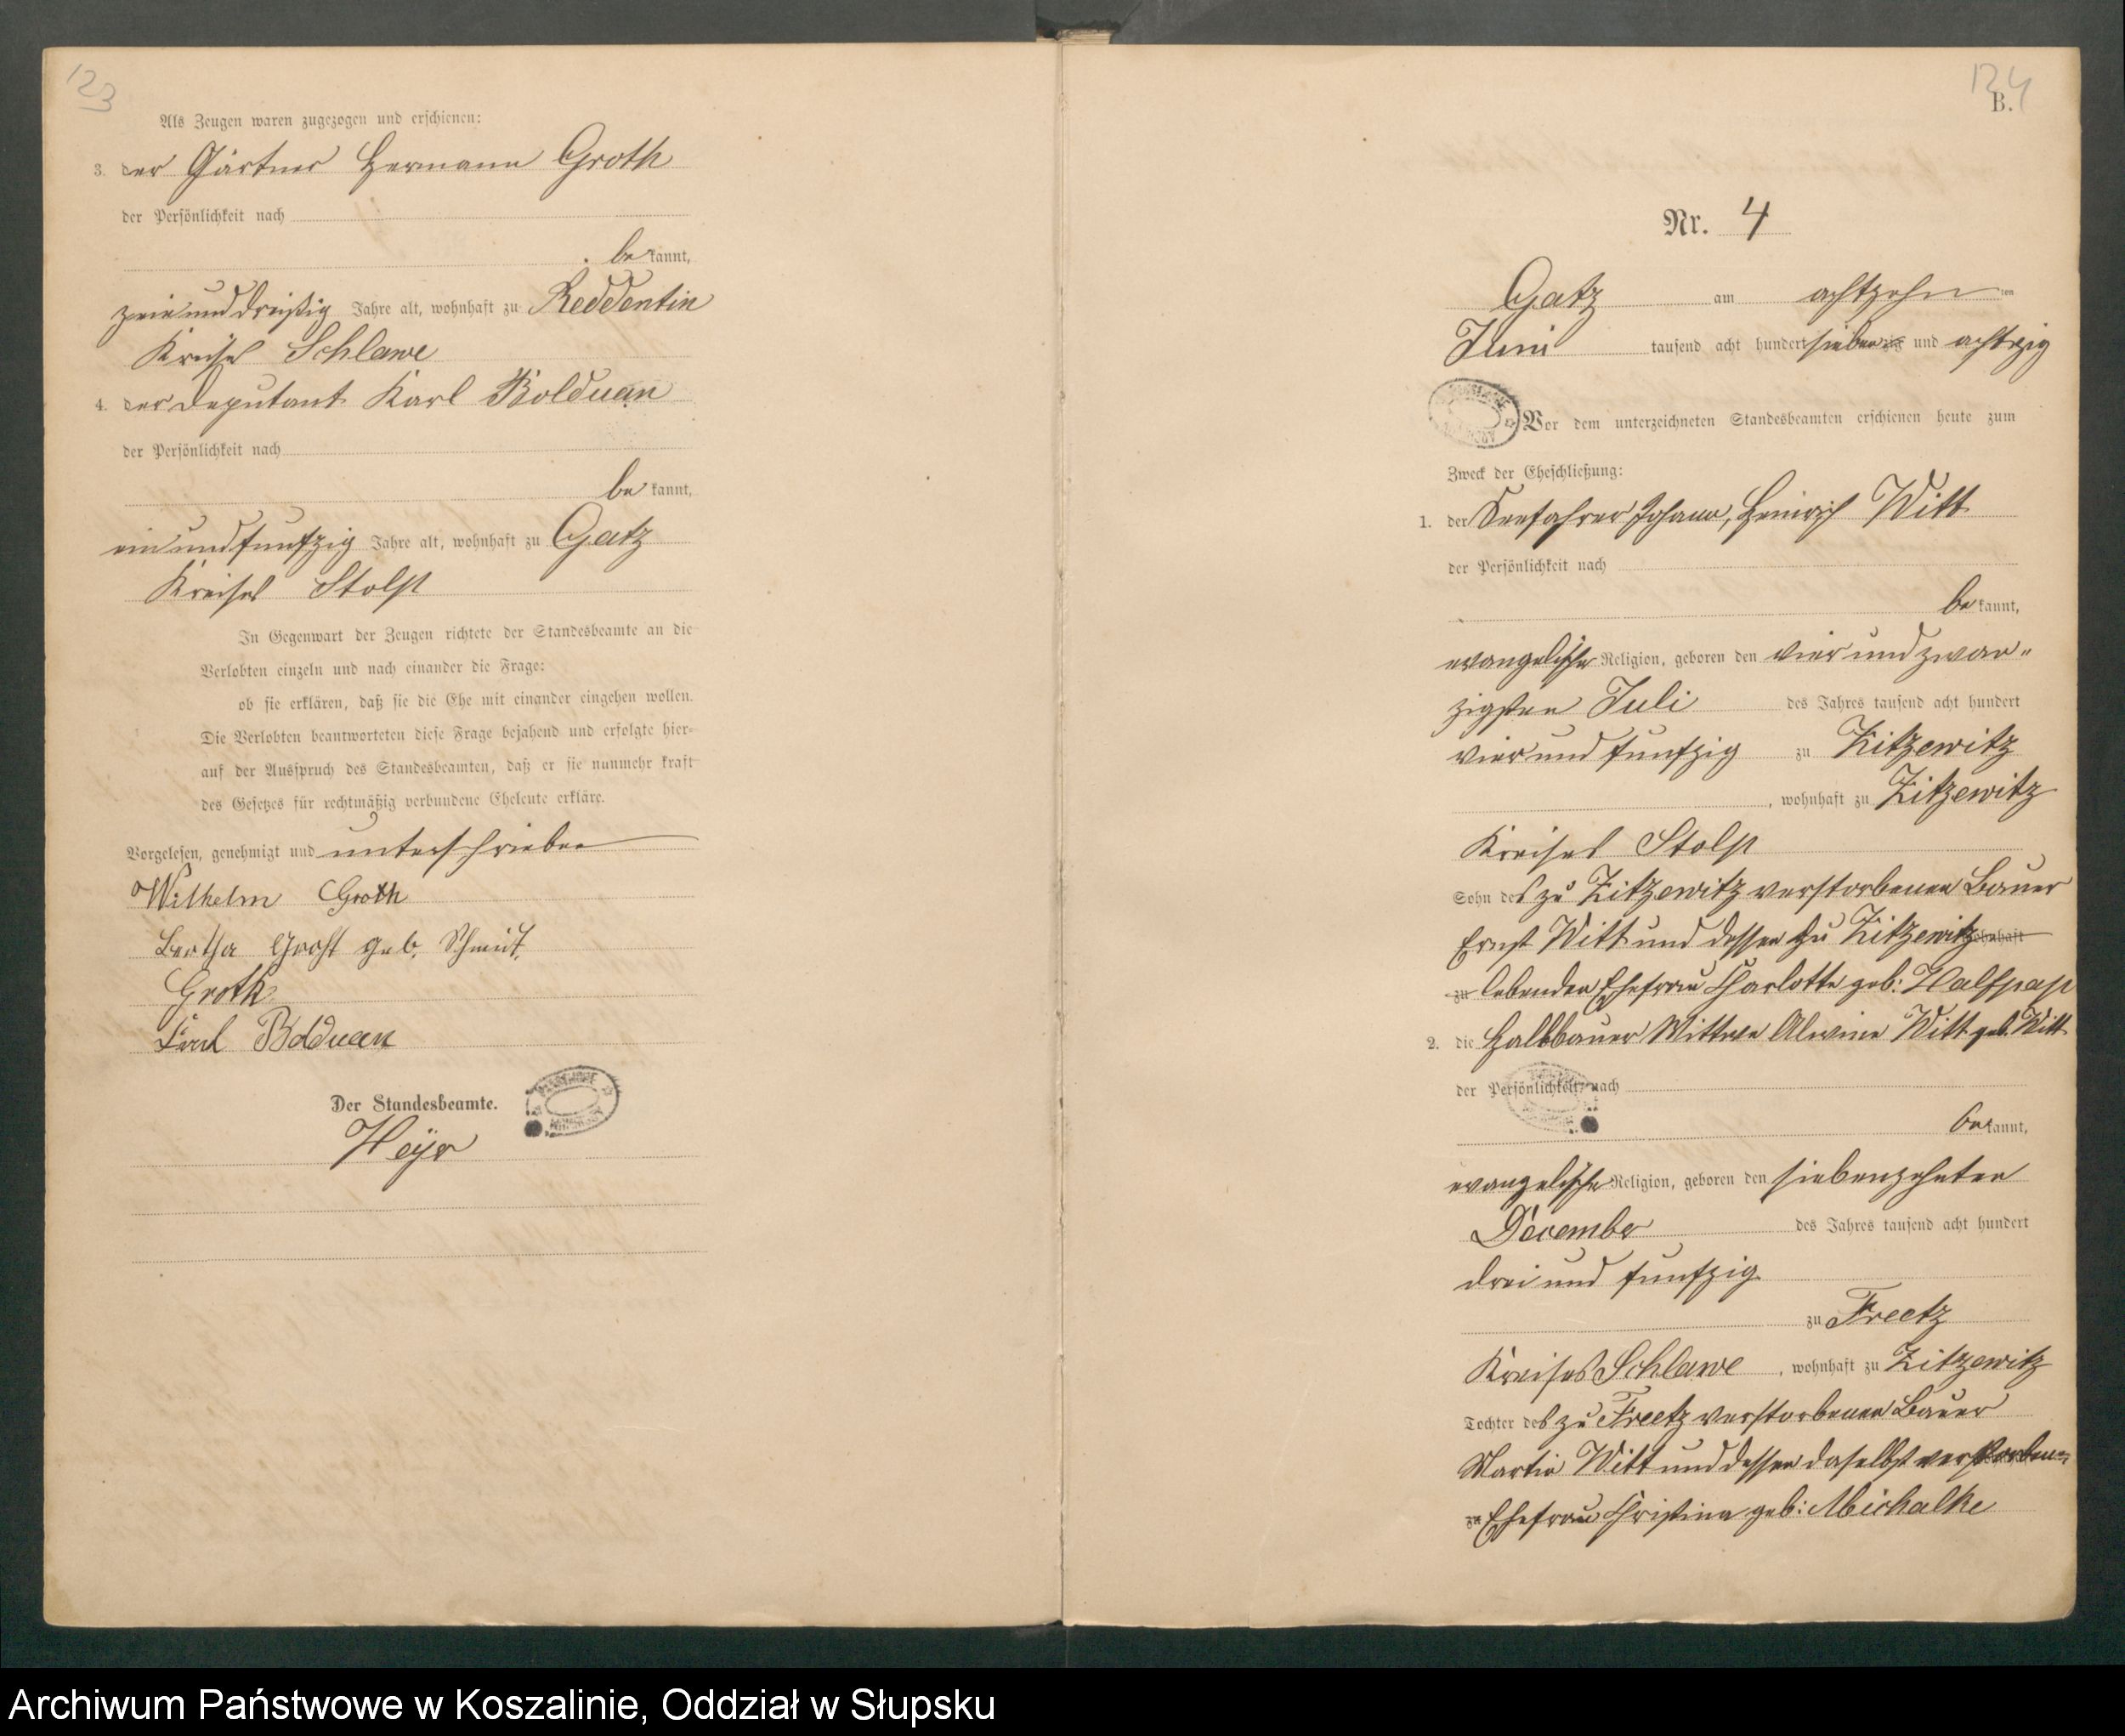 123
Als Zeugen waren zugezogen und erschienen:
3. der Gärtner Hermann Groth
der Persönlichkeit nach
bekannt,
zweiunddreißig Jahre alt, wohnhaft zu Reddentin
Kreises Schlawe
4. der Deputant Karl Bolduan
der Persönlichkeit nach
be kannt,
einundfunfzig Jahre alt, wohnhaft zu Gatz
Kreises Stolp
In Gegenwart der Zeugen richtete der Standesbeamte an die
Verlobten einzeln und nach einander die Frage:
ob sie erklären, daß sie die Ehe mit einander eingehen wollen.
Die Verlobten beantworteten diese Frage bejahend und erfolgte hier-
auf der Ausspruch des Standesbeamten, daß er sie nunmehr kraft
des Gesetzes für rechtmäßig verbundene Eheleute erkläre.
Vorgelesen, genehmigt und unterschrieben
Wilhelm Groth
Bertha Groht geb. Schmidt.
Groth
Karl Bolduan
Der Standesbeamte.
Heyer
124
B.
Nr. 4
Gatz am achtzehn ten
Juni tausend acht hundert siebenzig und achtzig
Vor dem unterzeichneten Standesbeamten erschienen heute zum
Zweck der Eheschließung:
1. der Seefahrer Johann, Heinrich Witt
der Persönlichkeit nach
be kannt,
evangelischer Religion, geboren den vier und zwan-
zigsten Juli des Jahres tausend acht hundert
vier und funfzig zu Zitzewitz
, wohnhaft zu Zitzewitz
Kreises Stolp
Sohn des zu Zitzewitz verstorbenen Bauer
Ernst Witt und dessen zu Zitzewitz wohnhaft
zu lebenden Ehefrau Charlotte geb: Halfpap
2. die Halbbauer Wittwe Alwine Witt geb. Witt
der Persönlichkeit nach
bekannt,
evangelischer Religion, geboren den siebenzehnten
December des Jahres tausend acht hundert
drei und funfzig
zu Freetz
Kreises Schlawe, wohnhaft zu Zitzewitz
Tochter des zu Freetz verstorbenen Bauer
Martin Witt und dessen daselbst verstorben-
zu Ehefrau Christina geb: Michalke
Archiwum Państwowe w Koszalinie, Oddział w Słupsku